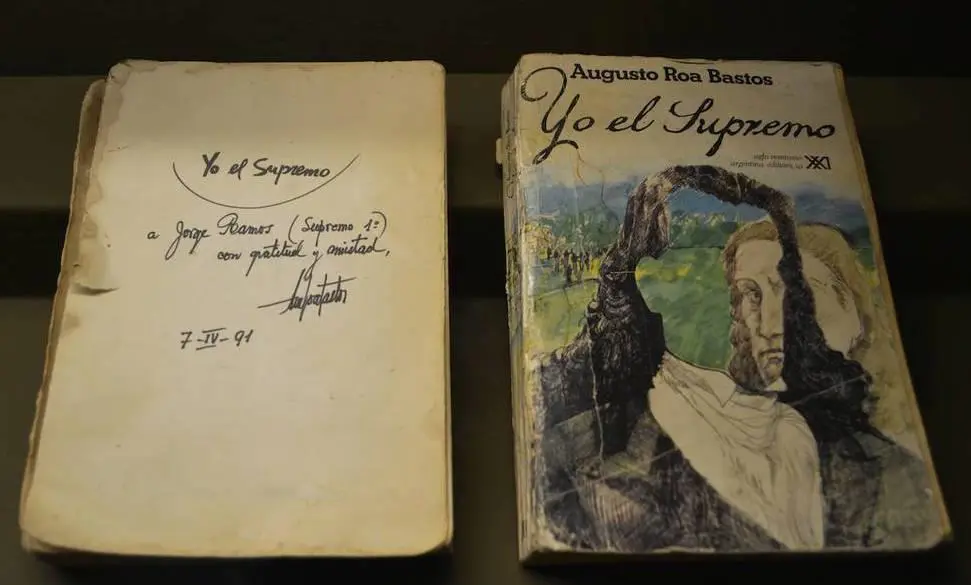 Yo el Supremo
a Jorge Ramos (Supremo 1º)
con gratitud y amistad,
7-IV-91
Augusto Roa Bastos
Yo el Supremo
siglo veintiuno
argentina editores, sa